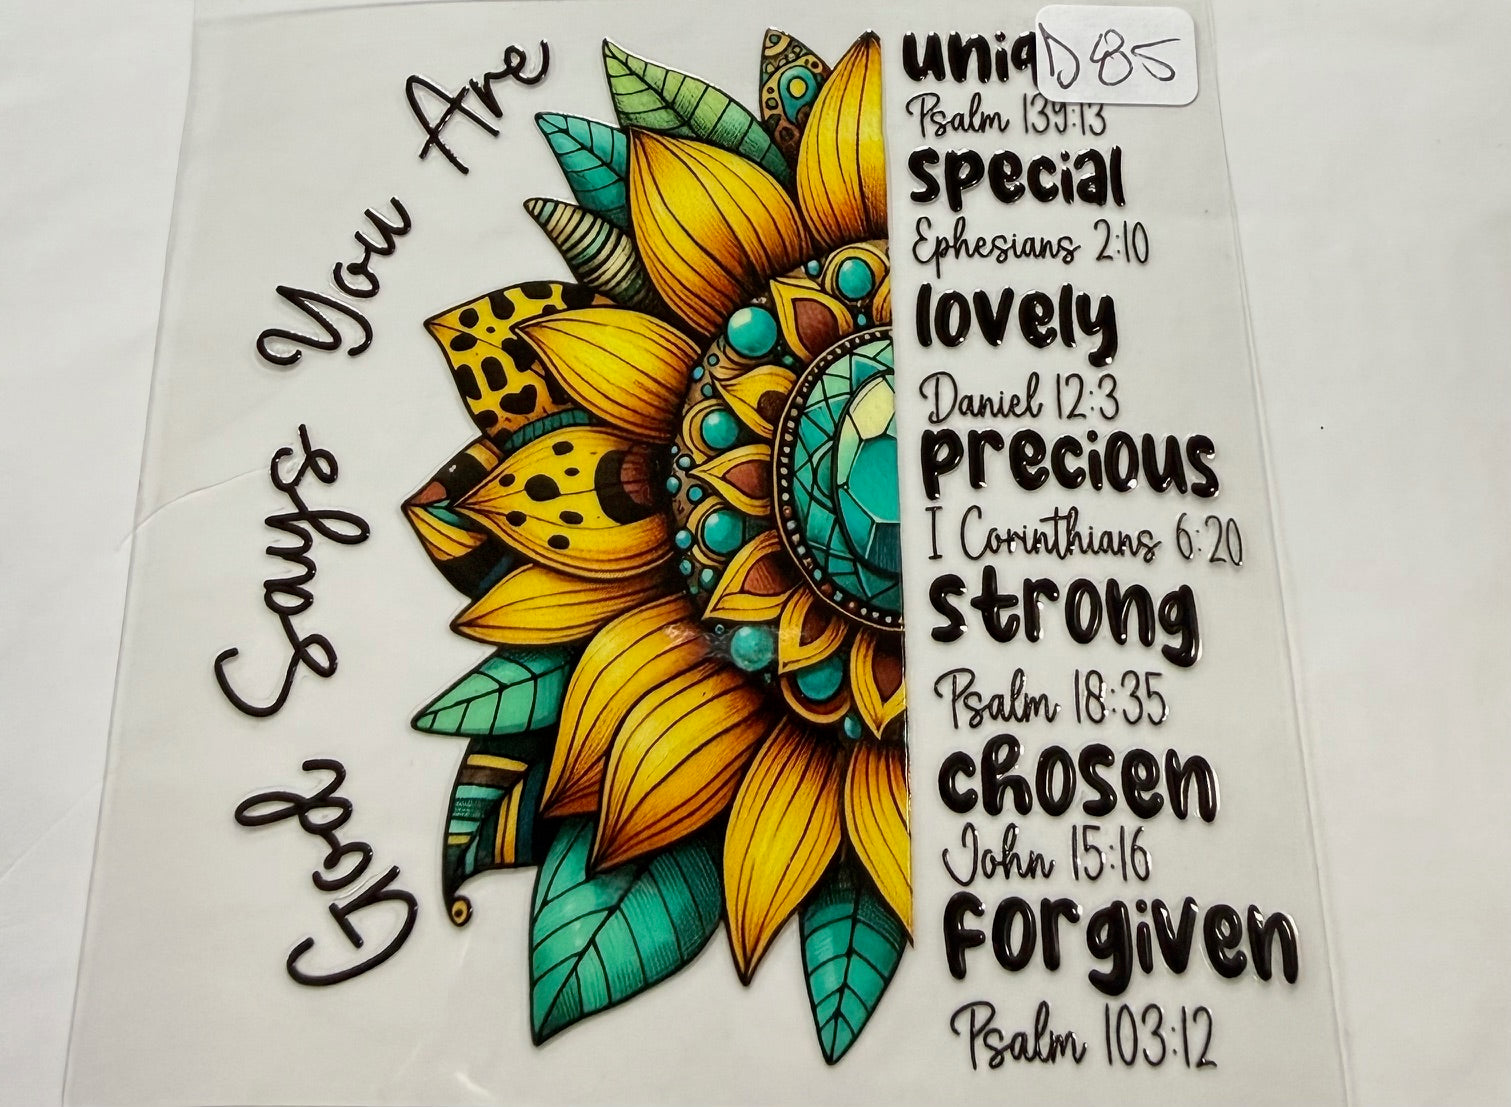 God Says You Are
uniq
D85
Psalm 139:13
special
Ephesians 2:10
lovely
Daniel 12:3
precious
I Corinthians 6:20
strong
Psalm 18:35
chosen
John 15:16
forgiven
Psalm 103:12